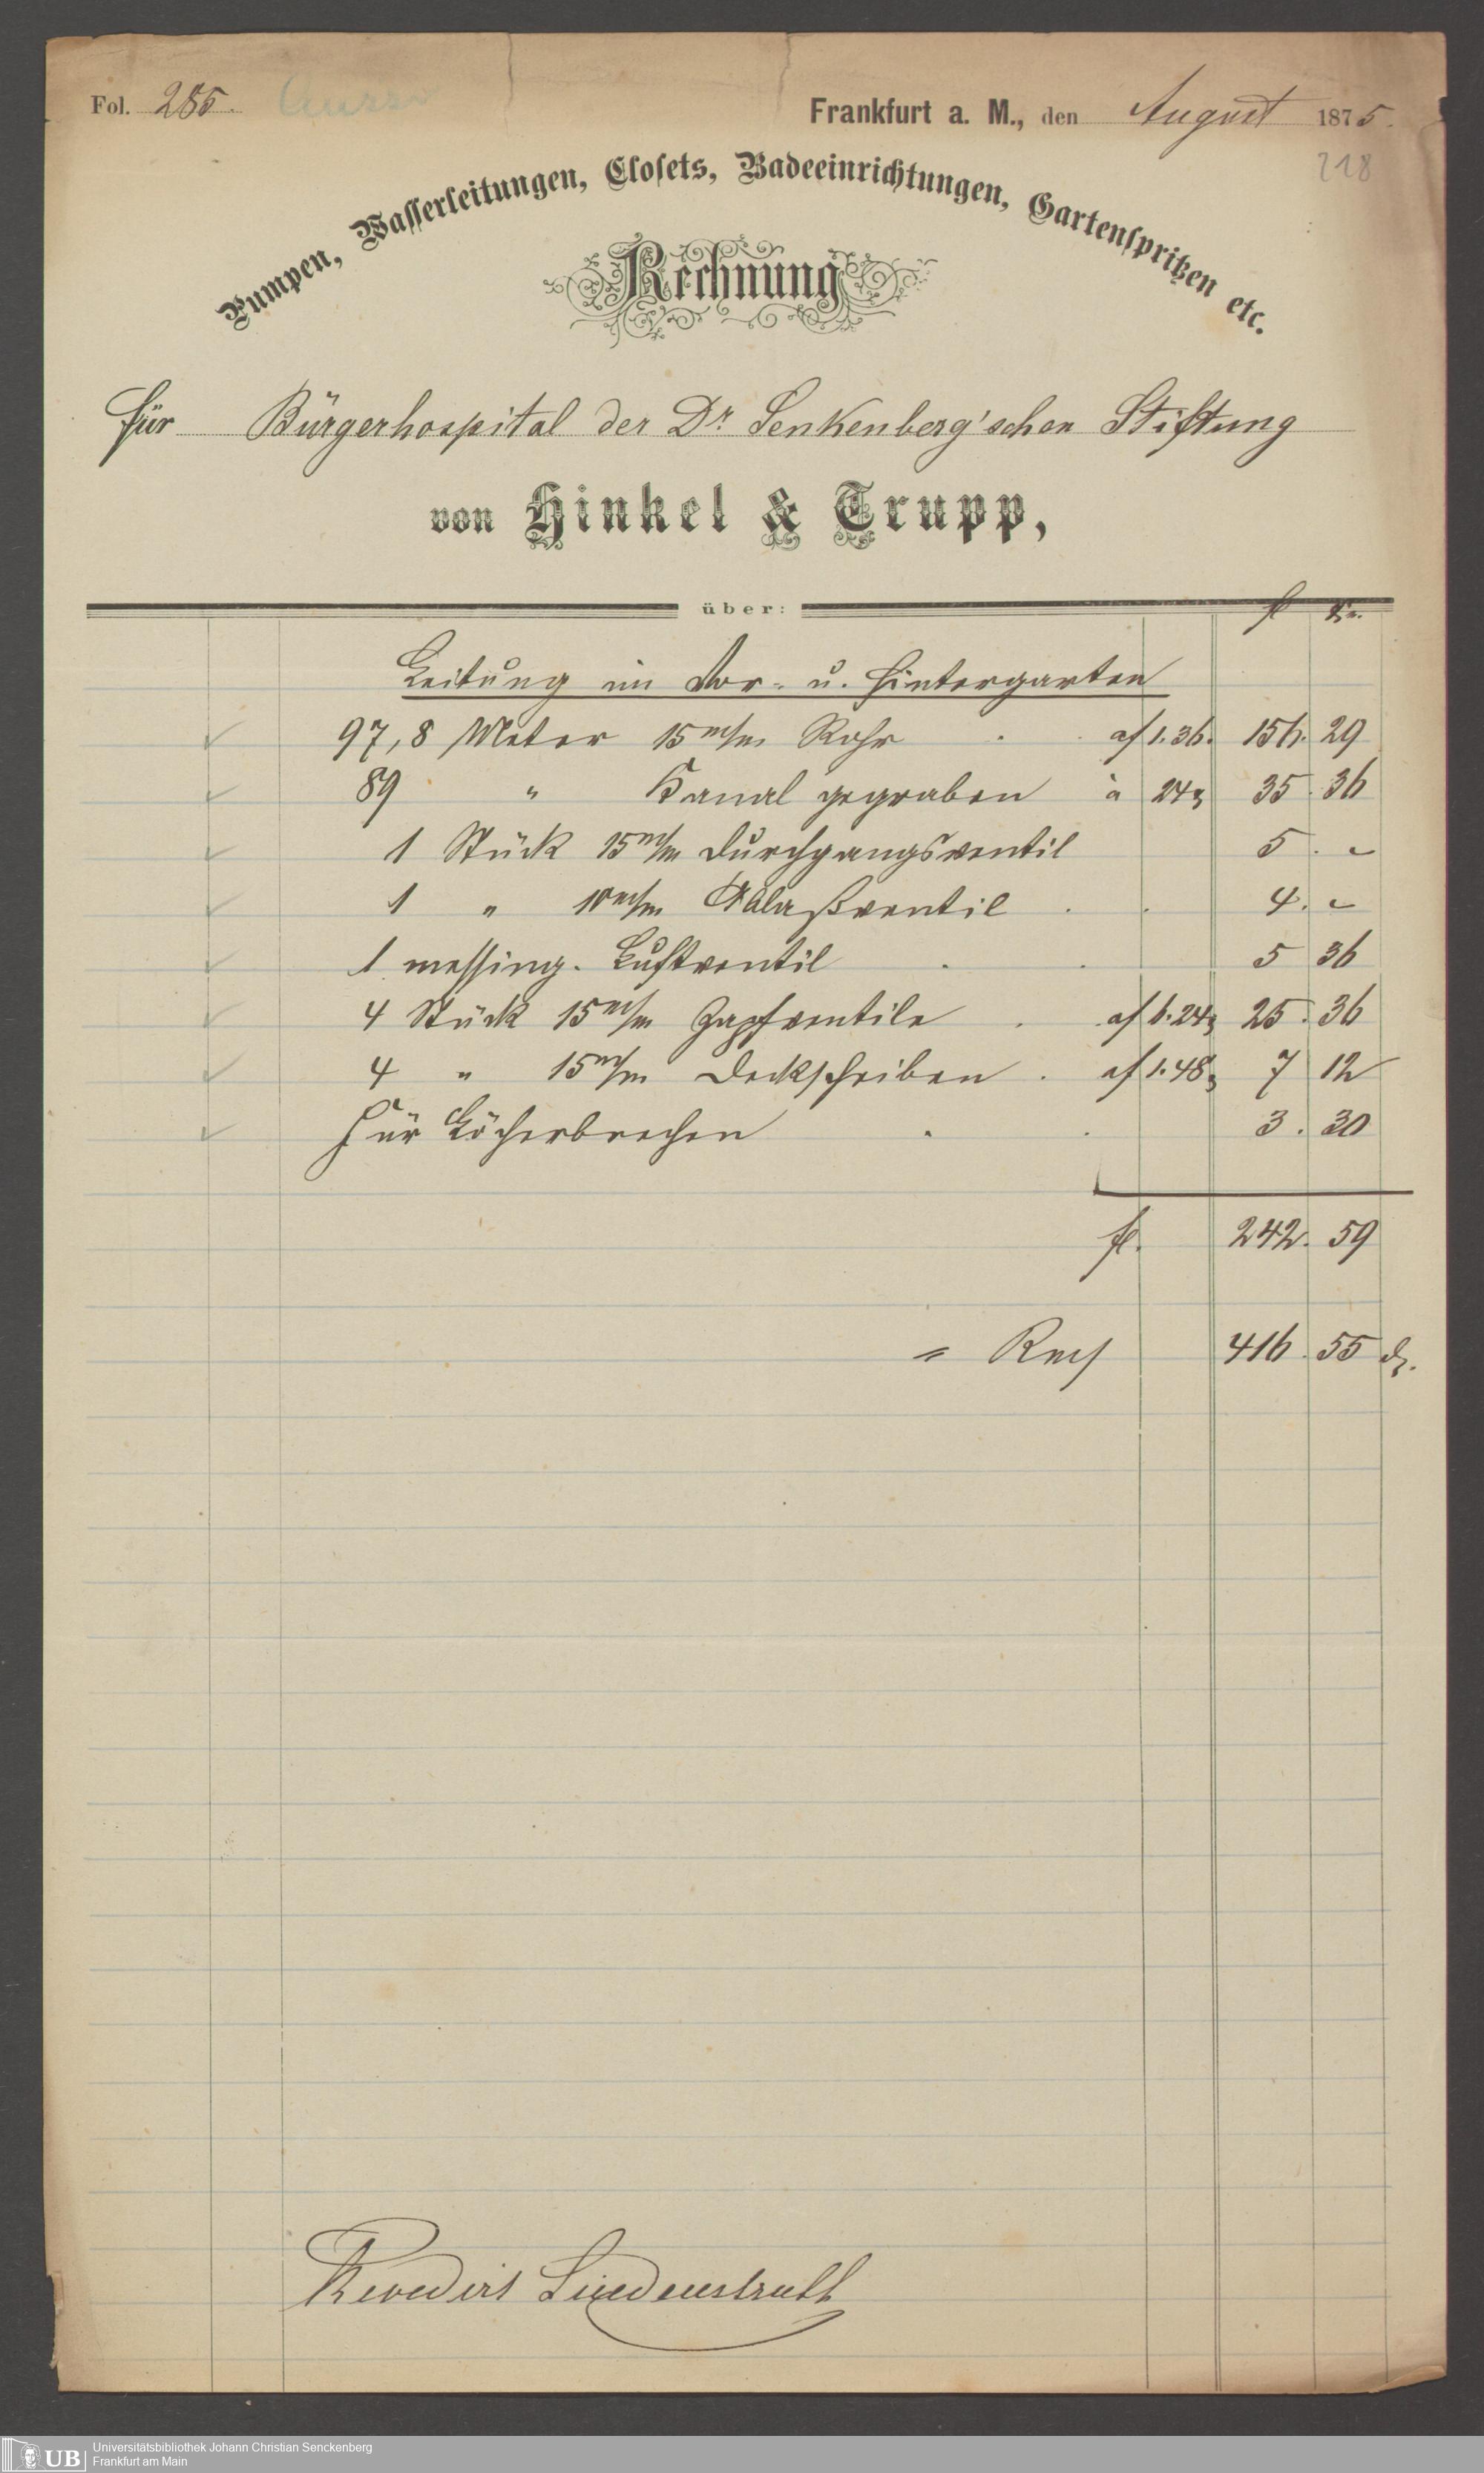 Fol. 285.
Frankfurt a. M., den August 1875.
218
Pumpen, Wasserleitungen, Closets, Badeeinrichtungen, Gartenspritzen etc.
Rechnung
für Bürgerhospital der Dr. Senkenberg'schen Stiftung
von Hinkel & Trupp,
über:
fl Kr.
Leitung im Vor- u. Hintergarten
97,8 Meter 15 m/m Rohr . af 1.36. 156. 29
89 " Kanal gegraben à 24 35. 36
1 Stück 15 m/m Durchgangsventil 5. -
1 " 10 m/m Ablaßventil . . 4. -
1 messing. Luftventil . . 5 36
4 Stück 15 m/m Zapfventile . af 6.24 25. 36
4 " 15 m/m Deckscheiben . af 1.48 7 12
Für Löcherbrechen . . 3. 30
fl. 242. 59
= Rm 416. 55 d.
Revedirt Lindenstruth
Universitätsbibliothek Johann Christian Senckenberg
Frankfurt am Main
UB